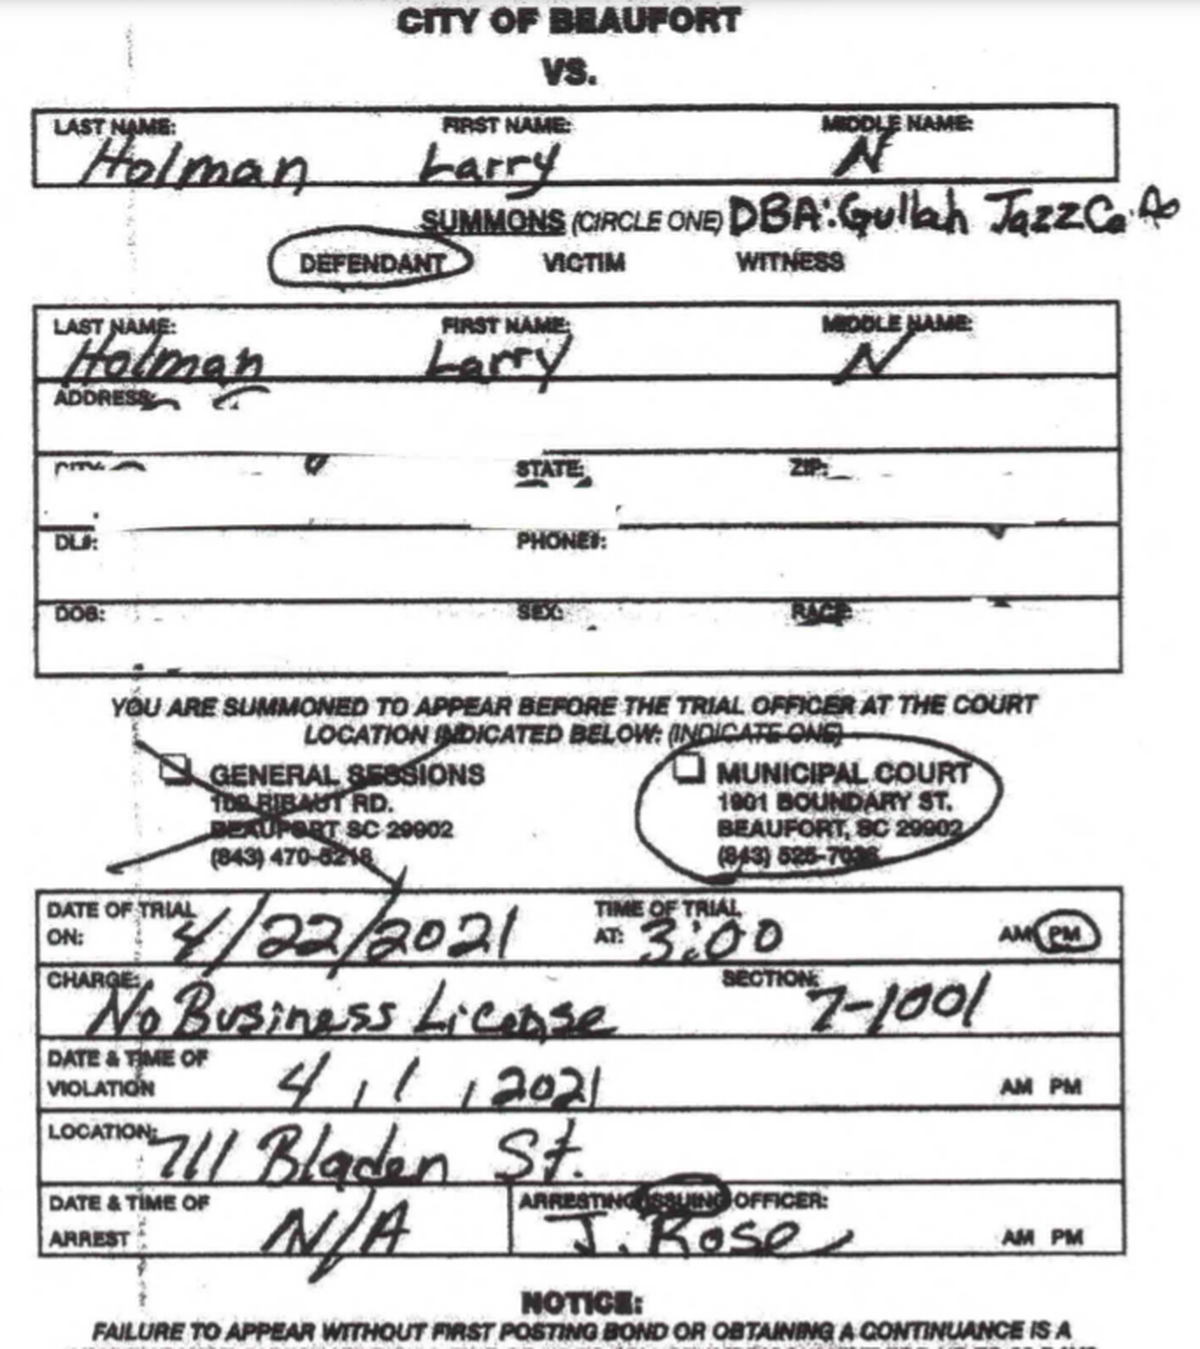 CITY OF BEAUFORT
VS.
LAST NAME: FIRST NAME: MIDDLE NAME:
Holman Larry N
SUMMONS (CIRCLE ONE) DBA: Gullah Jazz Co.
DEFENDANT VICTIM WITNESS
LAST NAME: FIRST NAME: MIDDLE NAME:
Holman Larry N
ADDRESS:
STATE: ZIP:
DL#: PHONE#:
DOB: SEX: RACE:
YOU ARE SUMMONED TO APPEAR BEFORE THE TRIAL OFFICER AT THE COURT
LOCATION INDICATED BELOW: (INDICATE ONE)
GENERAL SESSIONS MUNICIPAL COURT
102 RIBAUT RD. 1901 BOUNDARY ST.
BEAUFORT SC 29902 BEAUFORT, SC 29902
(843) 470-5218 (843)
DATE OF TRIAL TIME OF TRIAL
ON: 4/22/2021 AT: 3:00 AM PM
CHARGE: SECTION:
No Business License 7-1001
DATE & TIME OF
VIOLATION 4, 1, 2021 AM PM
LOCATION: 711 Bladen St.
DATE & TIME OF ARRESTING ISSUING OFFICER:
ARREST N/A J. Rose AM PM
NOTICE:
FAILURE TO APPEAR WITHOUT FIRST POSTING BOND OR OBTAINING A CONTINUANCE IS A